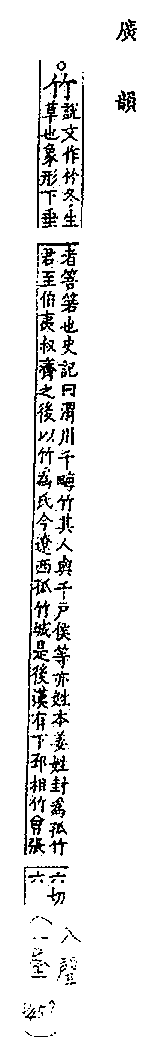 廣韻
竹
說文作竹冬生
草也象形下垂
者箁箬也史記曰渭川千畮竹其人與千戶侯等亦姓本姜姓封為孤竹
君至伯夷叔齊之後以竹為氏今遼西孤竹城是後漢有下邳相竹曾張
六切
六
入聲
(一屋
457)